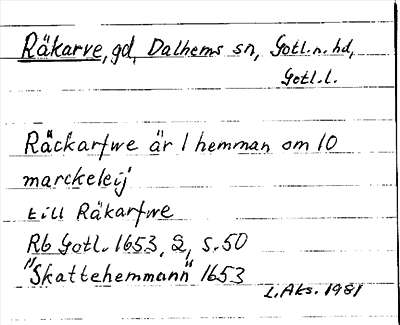 Räkarve, gd, Dalhems sn, Gotl. n. hd,
Gotl. l.
Räckarfwe är 1 hemman om 10
marckeleij
till Räkarfwe
Rb Gotl. 1653, 2, s. 50
"Skattehemmann" 1653
I. Aks. 1981